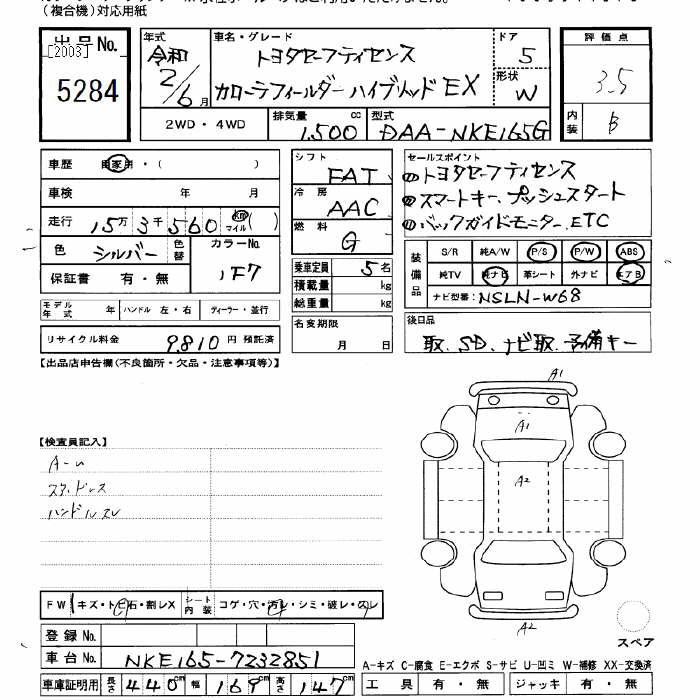 (複合機)対応用紙
出品No.
[2003]
5284
年式
令和
2/6月
車名・グレード
トヨタセーフティセンス
カローラフィールダーハイブリッド EX
ドア
5
形状
W
評価点
3.5
内装
B
2WD・4WD
排気量 1,500 cc
型式 DAA-NKE165G
車歴 自家用・( )
車検 年 月
走行 15万3千560 km マイル( )
色 シルバー 色替
カラーNo. 1F7
保証書 有・無
シフト FAT
冷房 AAC
燃料 G
乗車定員 5名
積載量 kg
総重量 kg
セールスポイント
①トヨタセーフティセンス
②スマートキー、プッシュスタート
③バックガイドモニター.ETC
装備品
S/R 純A/W P/S P/W ABS
純TV 純ナビ 革シート 外ナビ エアB
ナビ型番: NSLN-W68
モデル年式 年 ハンドル 左・右 ディーラー・並行
名変期限
月 日
後日品
取、SD、ナビ取、予備キー
リサイクル料金 9,810 円 預託済
【出品店申告欄(不良箇所・欠品・注意事項等)】
A1
A1
A2
A2
【検査員記入】
A-U
スタッドレス
ハンドルスレ
FW キズ・トビ石・割レX シート内装 コゲ・穴・汚レ・シミ・破レ・スレ
登録No.
車台No. NKE165-7232851
車庫証明用 長さ 440cm 幅 169cm 高さ 147cm
スペア
A-キズ C-腐食 E-エクボ S-サビ U-凹ミ W-補修 XX-交換済
工具 有・無 ジャッキ 有・無